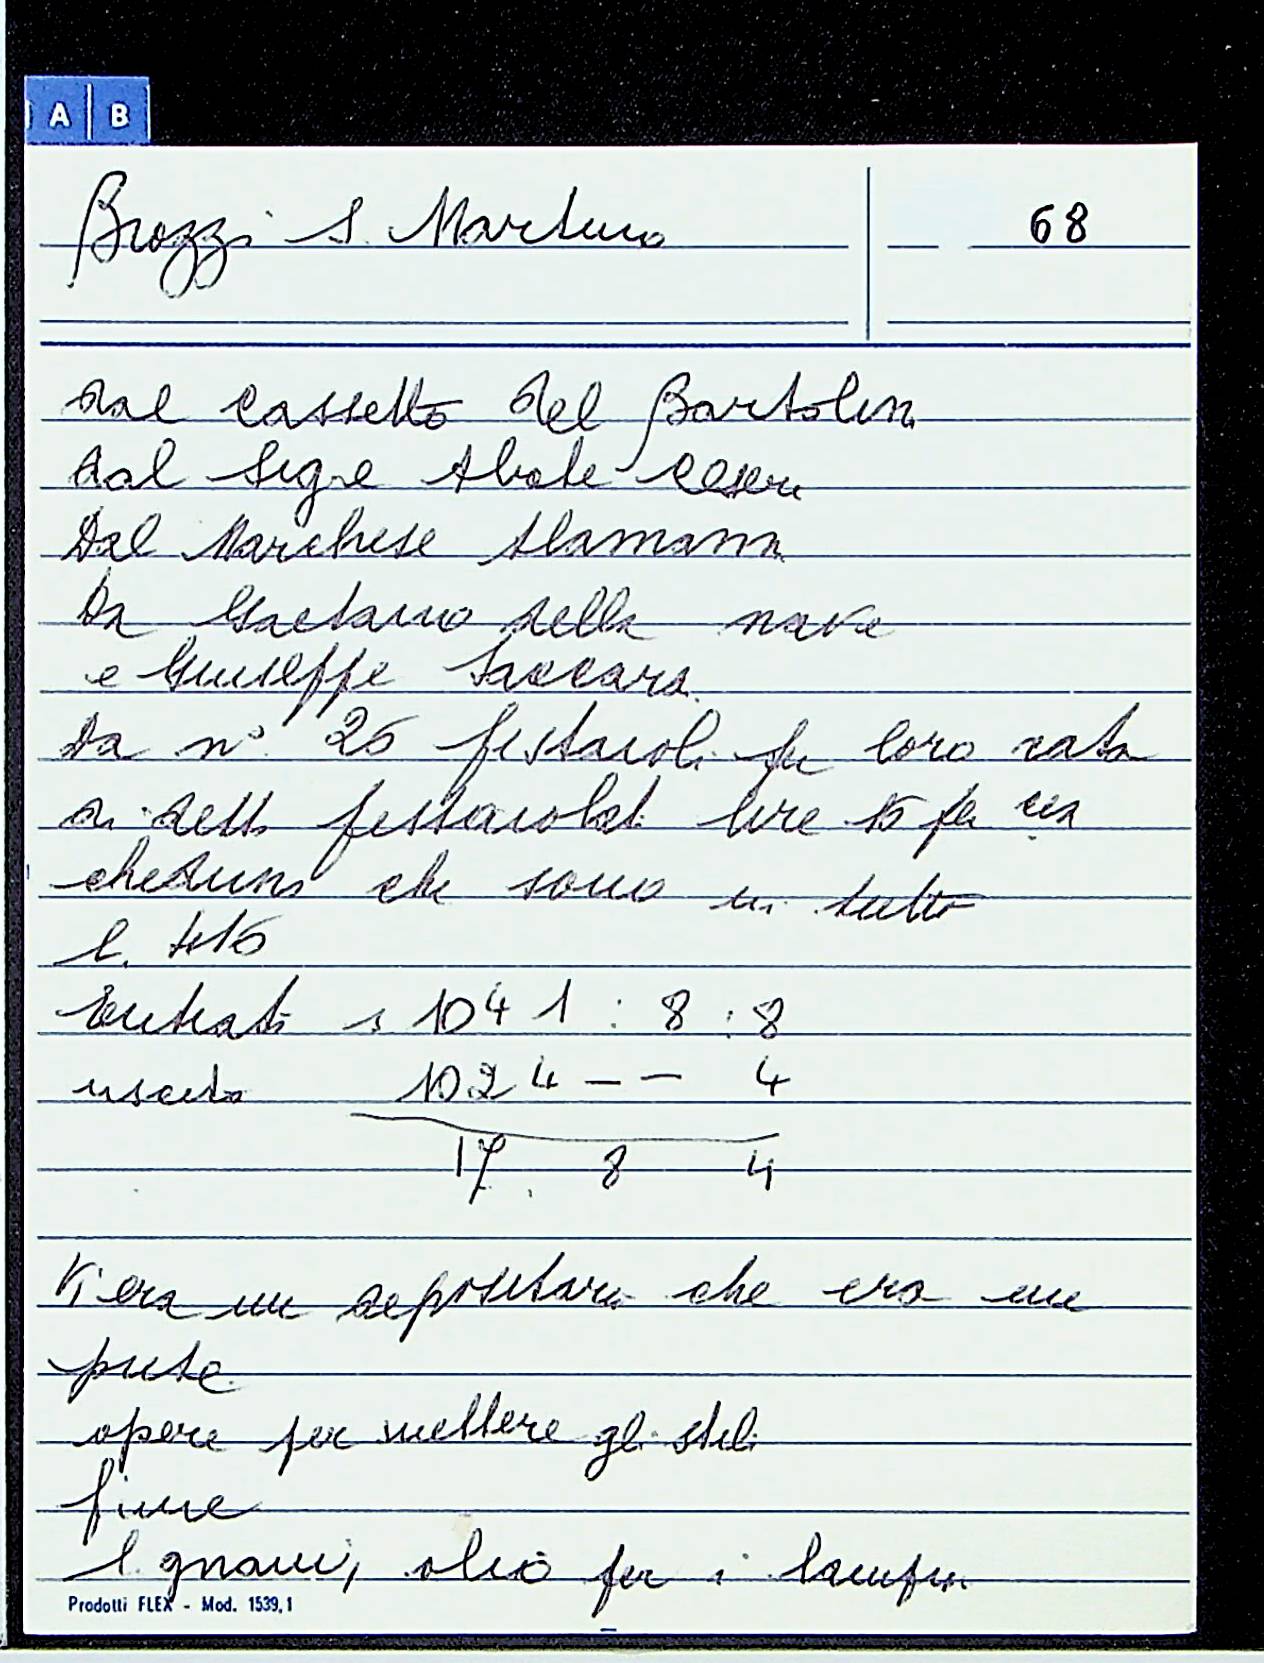 A B
Brozzi S. Martino
68
dal cassetto del Bartolini
dal Sigre Abate
Dal Marchese Alamanni
Da Gaetano della nave
e Giuseppe Saccardi
Da n° 26 festaioli per loro rata
di detti lire 16 per cia
cheduno che sono in tutto
l. 416
Entrata s 1041 : 8 : 8
uscita 1024 - - 4
17 8 4
Vi era un depositario che era un
prete
opere per mettere gli stili
fune
legnami, olio per i lampini
Prodotti FLEX - Mod. 1539,1